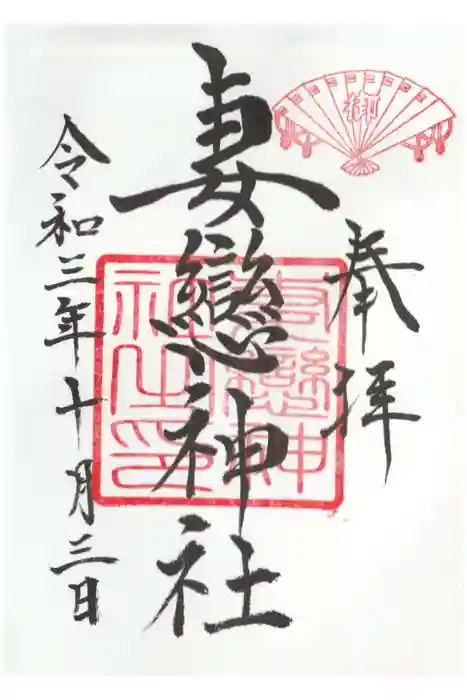 奉拝
妻戀神社
令和三年十月三日
御
妻戀神
社之印